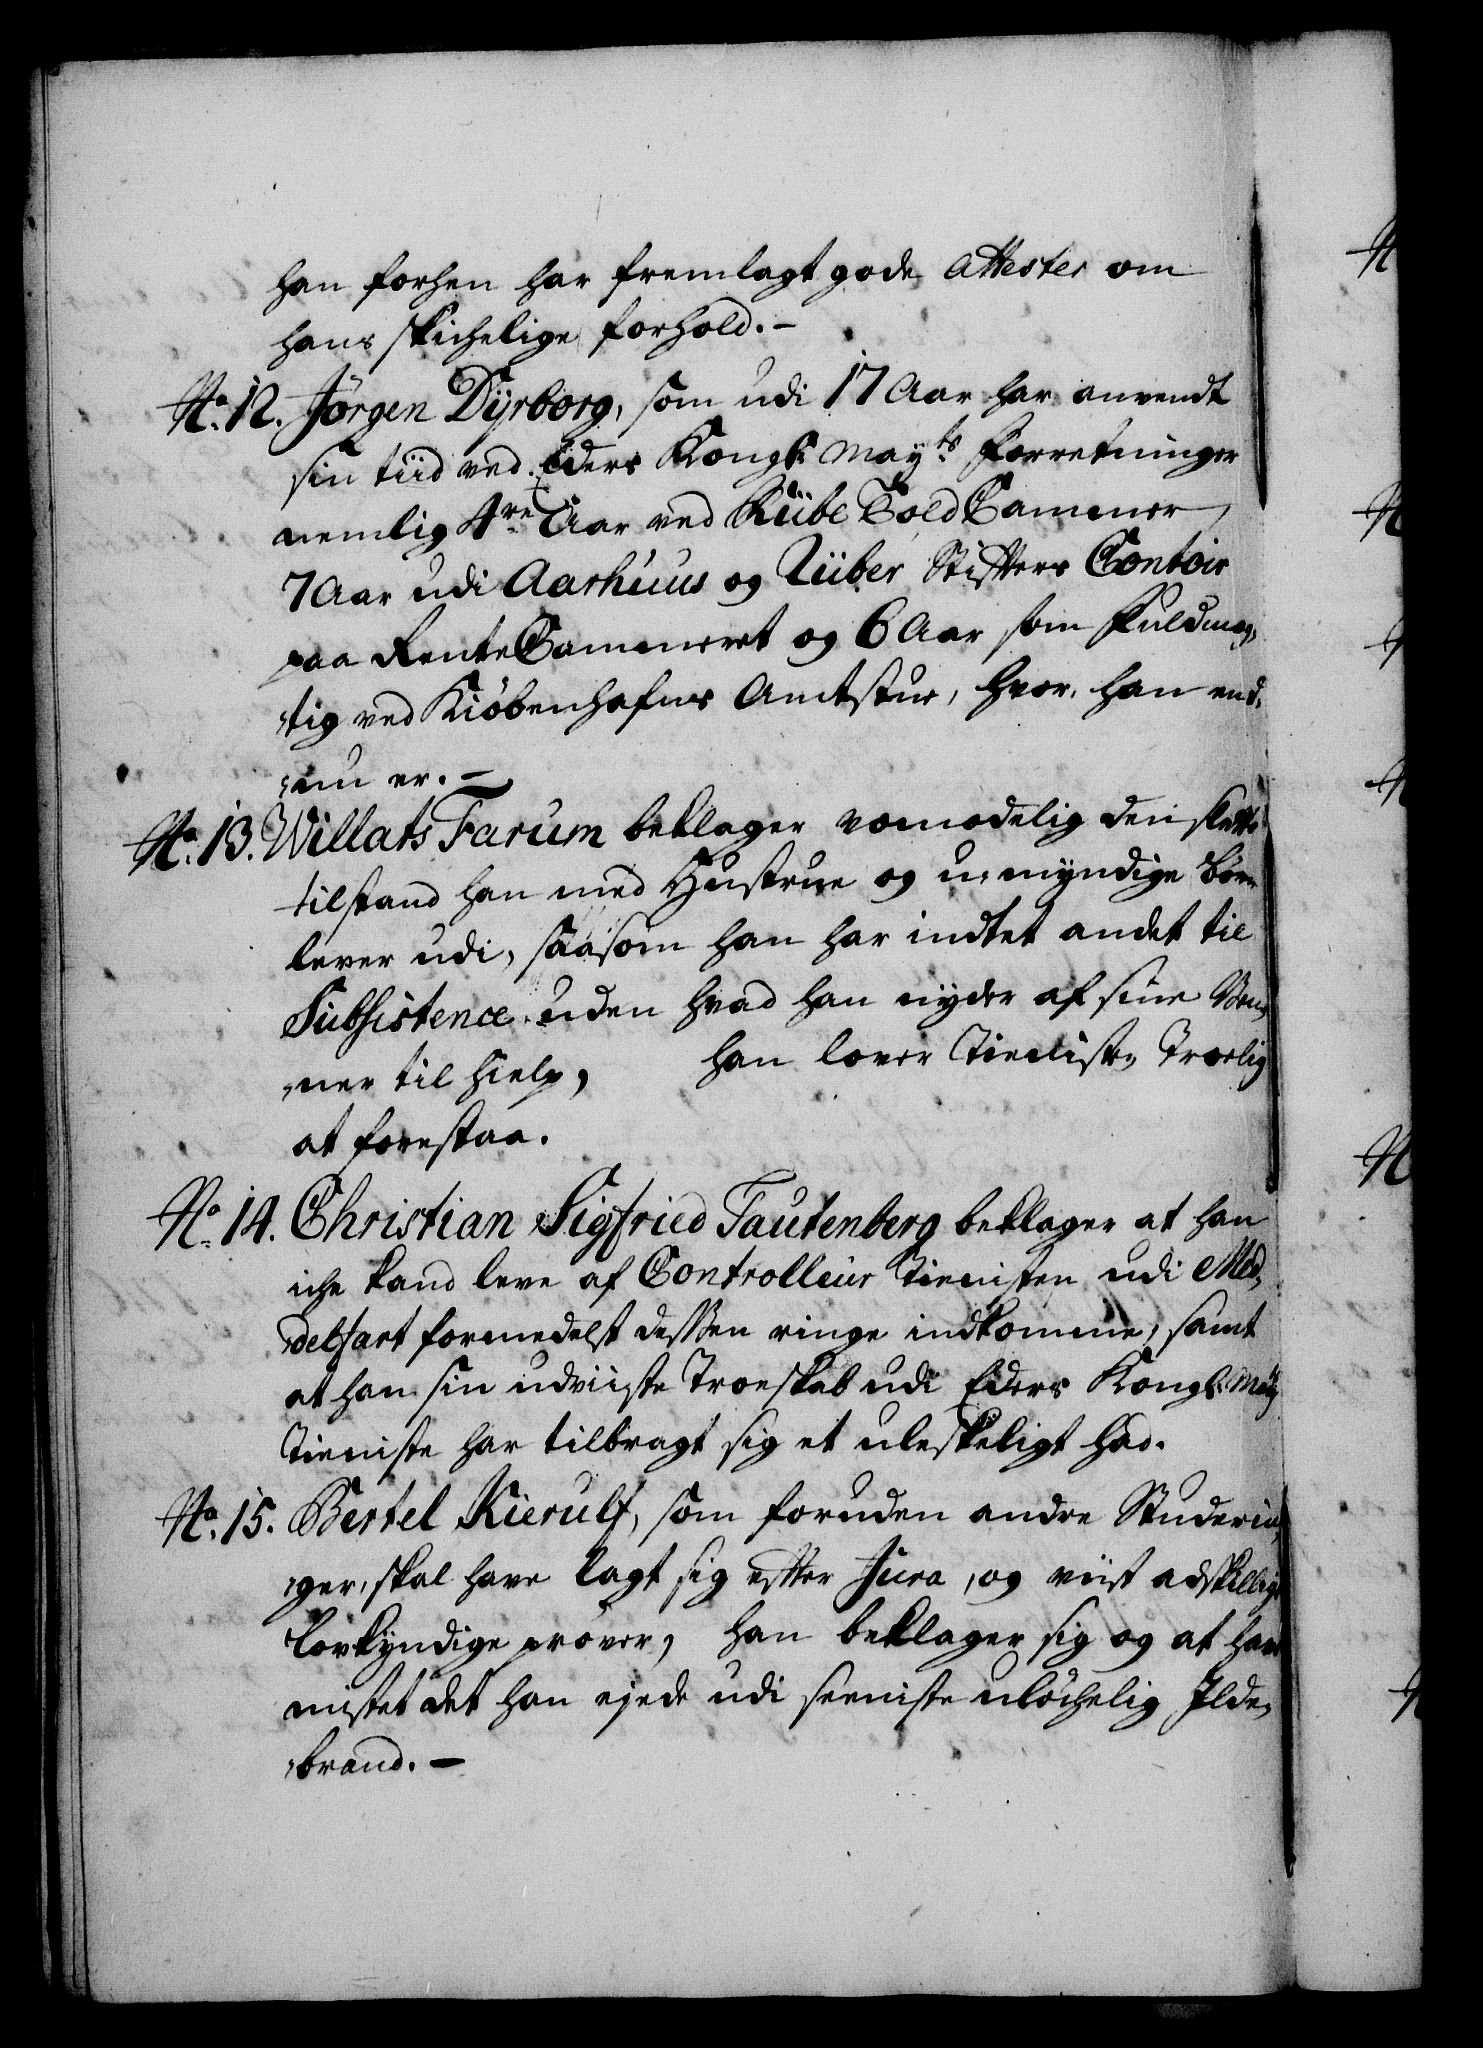 han forhen har fremlagt gode Attester om
hans skichelige forhold.-
No. 12. Jørgen Dyrborg, som udi 17 Aar har anvendt
sin tiid ved Eders Kongl: Mayts Forretninger
nemlig 4re Aar ved Ribe Told Cammer,
7 Aar udi Aarhuus og Riiber Stifters Contoir
paa Rente Cammeret og 6 Aar som Fuldmeg,
,tig ved Kiöbenhafns Amtstue, hvor han end,
,nu er. -
No. 13. Willats Farum beklager vemodelig den slette
tilstand han med Hustrue og u,myndige börn
lever udi, saasom han har indtet andet til
Subsistence uden hvad han nyder af sine Ven,
,ner til hielp, han lover Tienisten Troelig
at forestaa.
No. 14. Christian Sigfried Tautenberg beklager at han
iche kand leve af Controlleur Tienisten udi Med,
,delfart formedelst dessen ringe indkomme, samt
at han sin udviiste Troeskab udi Eders Kongl: May
Tieniste har tilbragt sig et uleskeligt had.
No. 15. Bertel Kierulf, som foruden andre Studerin,
,ger, skal have lagt sig efter Jura, og viist adskillige
lovkyndige prøver, han beklager sig og at have
mistet det han ejede udi seeniste ulöchelig Ilde,
,brand. -